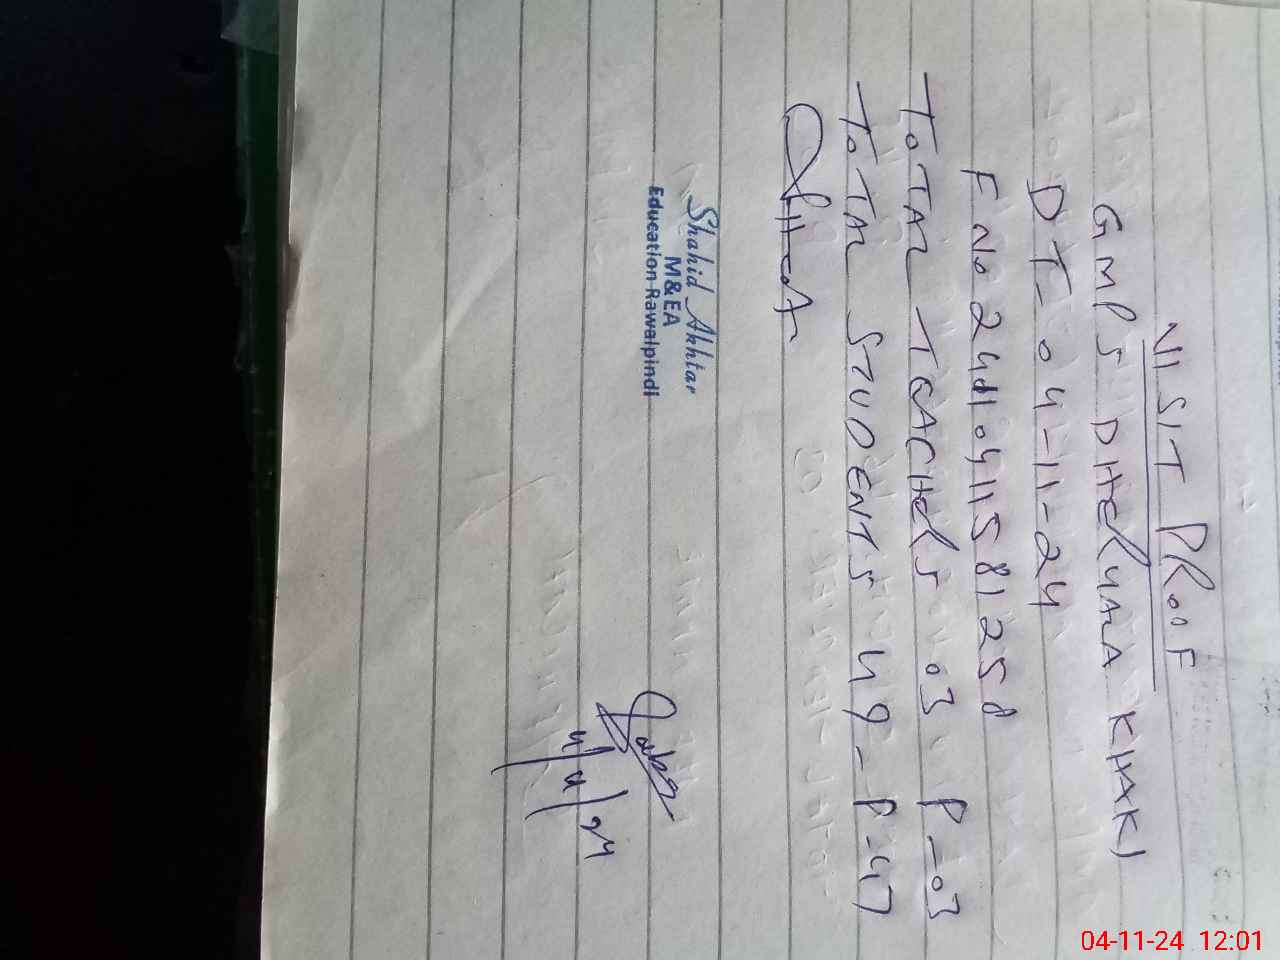 VISIT PROOF
GMPS DHERYALA KHAKI
DT- 04-11-24
F No 2411041158125
TOTAL TEACHERS 03 P-03
TOTAL STUDENTS 49-P-47
Shahid Akhtar
M&EA
Education Rawalpindi
4/11/24
04-11-24 12:01